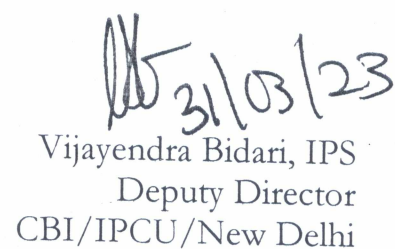 31/03/23
Vijayendra Bidari, IPS
Deputy Director
CBI/IPCU/New Delhi